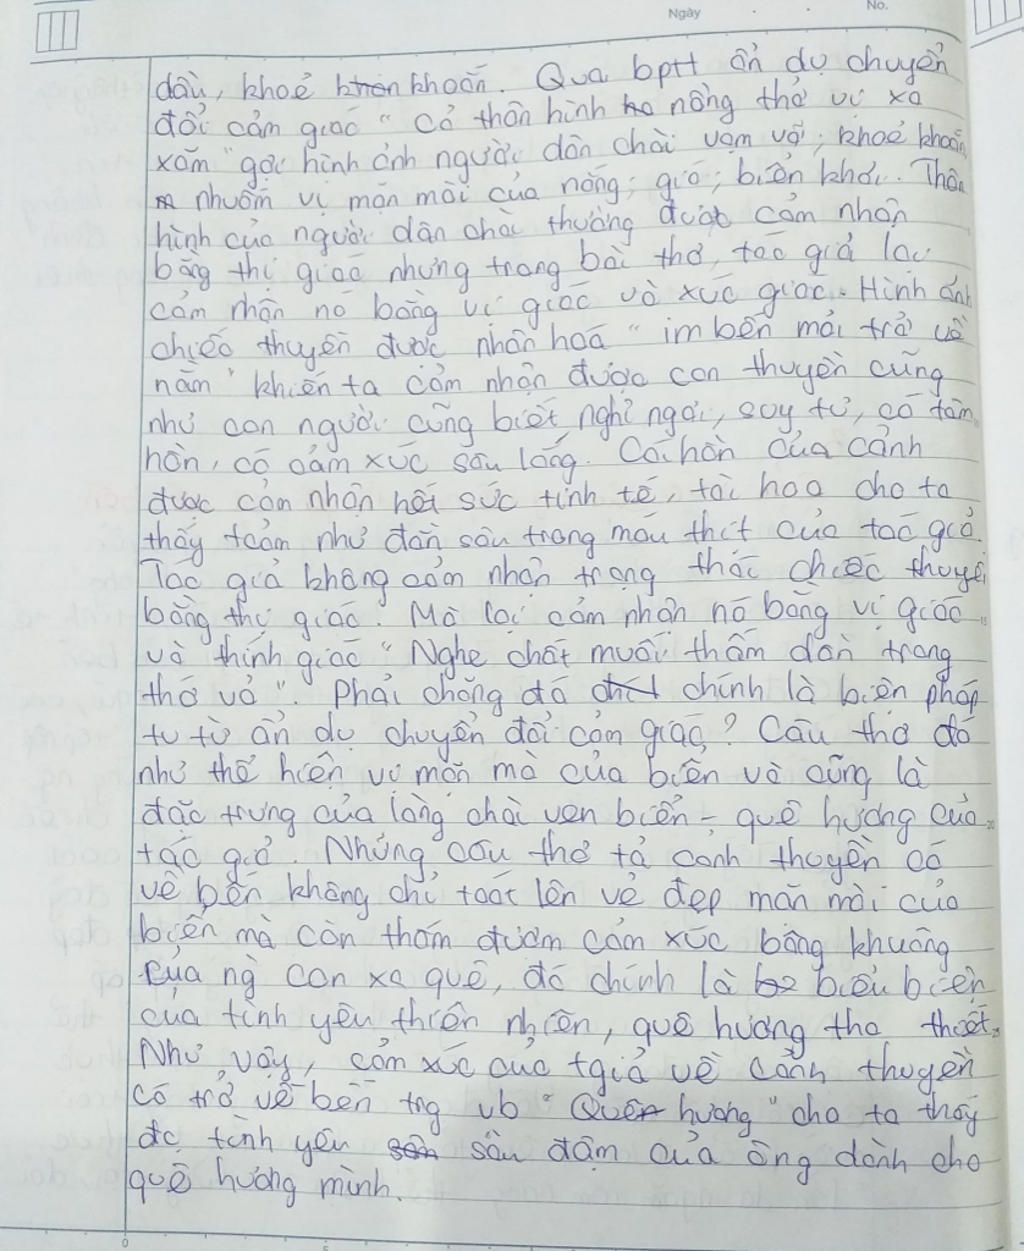 Ngày
No.
dầu, khoẻ khoắn. Qua bptt ẩn dụ chuyển
đổi cảm giác "Cả thân hình nồng thở vị xa
xăm" gợi hình ảnh người dân chài vạm vỡ, khoẻ khoắn
nhuốm vị mặn mòi của nắng, gió, biển khơi. Thân
hình của người dân chài thường được cảm nhận
bằng thị giác nhưng trong bài thơ, tác giả lại
cảm nhận nó bằng vị giác và xúc giác. Hình ảnh
chiếc thuyền được nhân hoá "im bến mỏi trở về
nằm" khiến ta cảm nhận được con thuyền cũng
như con người cũng biết nghỉ ngơi, suy tư, có tâm
hồn, có cảm xúc sâu lắng. Cái hồn của cảnh
được cảm nhận hết sức tinh tế, tài hoa cho ta
thấy tcảm như đằn sâu trong máu thịt của tác giả.
Tác giả không cảm nhận trạng thái chiếc thuyền
bằng thị giác. Mà lại cảm nhận nó bằng vị giác
và thính giác "Nghe chất muối thấm dần trong
thớ vỏ". Phải chăng đó chính là biện pháp
tu từ ẩn dụ chuyển đổi cảm giác? Câu thơ đó
như thể hiện vị mặn mà của biển và cũng là
đặc trưng của làng chài ven biển - quê hương của
tác giả. Những câu thơ tả cảnh thuyền cá
về bến không chỉ toát lên vẻ đẹp mặn mòi của
biển mà còn thấm đượm cảm xúc bâng khuâng
của ng con xa quê, đó chính là biểu biện
của tình yêu thiên nhiên, quê hương tha thiết.
Như vậy, cảm xúc của tgiả về cảnh thuyền
cá trở về bến tng vb "Quê hương" cho ta thấy
đc tình yêu sâu đậm của ông dành cho
quê hương mình.